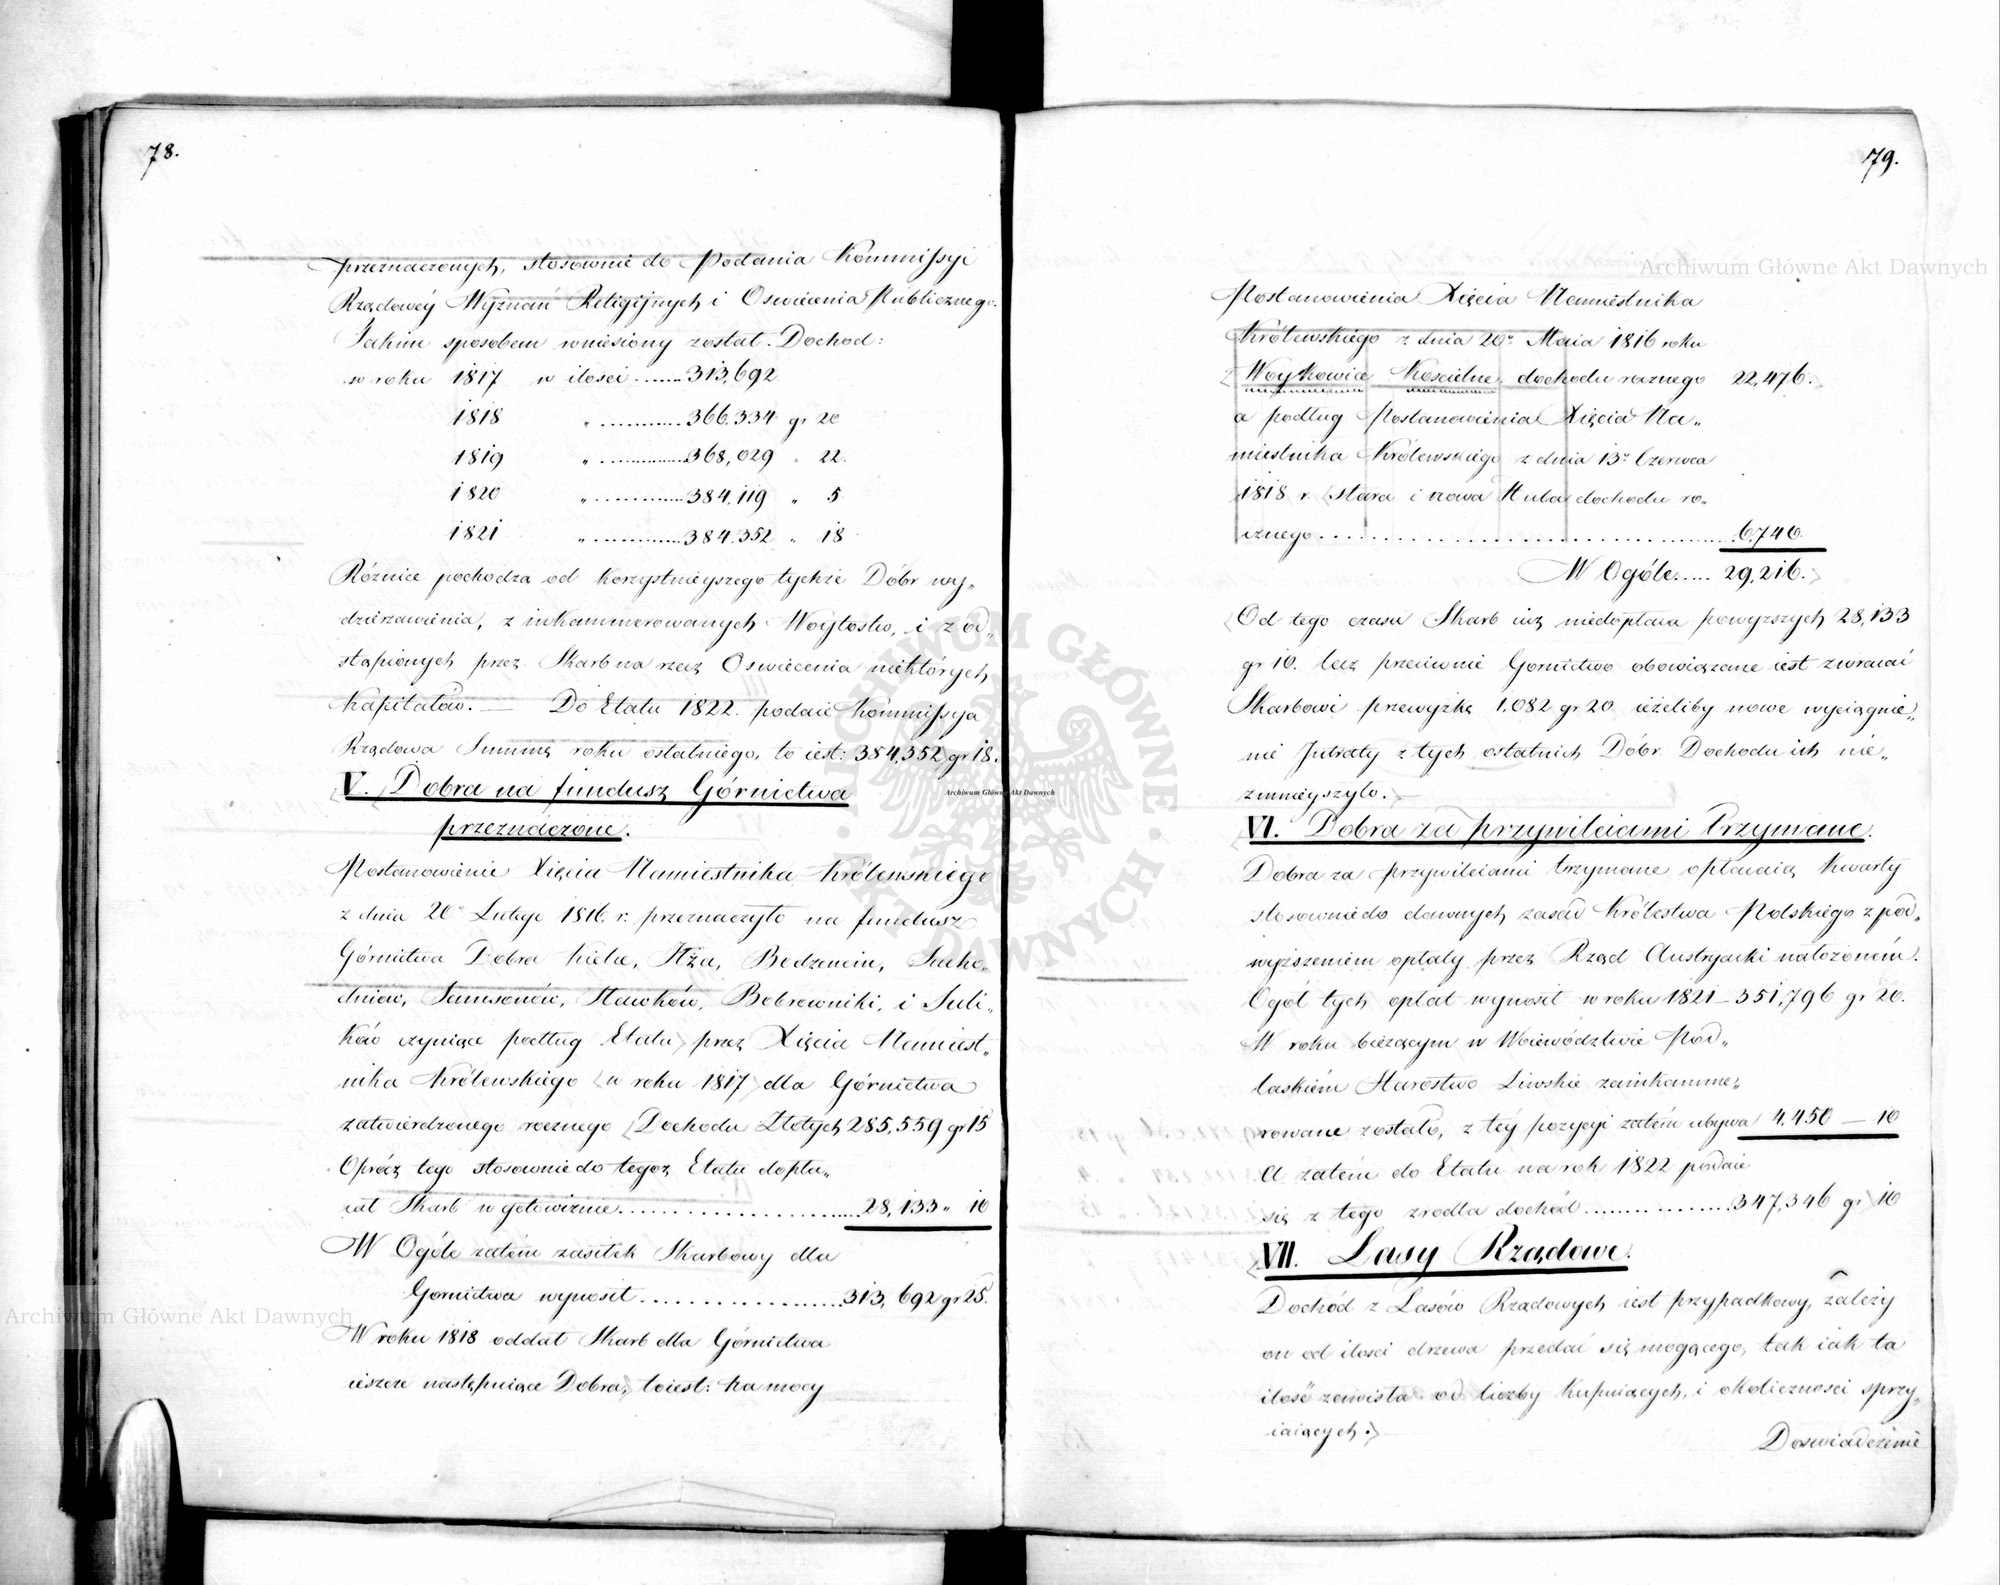 78.
przeznaczonych, stosownie do Podania Kommissyi
Rządowey Wyznań Religiynych i Oswiecenia Publicznego.
Jakim sposobem wniesiony został. Dochod:
w roku 1817 w ilosci ....... 313,692
1818 " ............ 366,334 gr 20
1819 " ............ 368,029 " 22.
1820 " ............ 384,119 " 5
1821 " ............ 384,352 " 18
Róźnice pochodza od korzystnieyszego tychże Dóbr wy„
dzierzawienia, z inkammerowanych Woytostw, i z od„
stąpionych przez Skarb na rzecz Oswiecenia niektórych
Kapitałów. — Do Etatu 1822. podaie Kommissya
Rządowa Summę roku ostatniego, to iest: 384,352 gr 18.
V. Dobra na fundusz Górnictwa
przeznaczone.
Postanowienie Xięcia Namiestnika Królewskiego
z dnia 20º Lutego 1816 r: przeznaczyło na fundusz
Górnictwa Dobra Kielce, Iłża, Bodzencin, Sucho„
dniów, Samsonów, Sławków, Bobrowniki, i Suli„
ków czyniące podług Etatu przez Xięcia Namiest„
nika Królewskiego w roku 1817 dla Górnictwa
zatwierdzonego rocznego Dochodu Złotych 285,559 gr 15
Oprócz tego stosownie do tegoż Etatu dopła„
cał Skarb w gotowiznie ........................ 28,133 " 10
W Ogóle zatém zasiłek Skarbowy dla
Gornictwa wynosił .................... 313,692 gr 25.
W roku 1818 oddał Skarb dla Górnictwa
ieszcze następuiące Dobra, toiest: na mocy
79.
Postanowienia Xięcia Namiestnika
Królewskiego z dnia 20º Maia 1816 roku
Woykowice Koscielne dochodu rocznego 22,476.
a podług Postanowienia Xięcia Na„
miestnika Królewskiego z dnia 13º Czerwca
1818 r. stara i nowa Huta dochodu ro„
cznego ........................................ 6,740.
W Ogóle ..... 29,216.
Od tego czasu Skarb iuż niedopłaca powyzszych 28,133
gr 10. lecz przeciwnie Gornictwo obowiązane iest zwracać
Skarbowi przewyżkę 1,082 gr 20. ieżeliby nowe wyciągnie„
nie Intraty z tych ostatnich Dóbr Dochodu ich nie„
zmnieyszyło.
VI. Dobra za przywileiami trzymane.
Dobra za przywileiami trzymane opłacaią Kwarty
stosownie do dawnych zasad Królestwa Polskiego z pod„
wyższeniem opłaty przez Rząd Austryacki nałożoném.
Ogół tych opłat wynosił w roku 1821 – 351,796 gr 20.
W roku bieżącym w Woiewództwie Pod„
laskiém Starostwo Liwskie zainkamme„
rowane zostało, z téy pozycyi zatém ubywa 4,450 — 10
A zatém do Etatu na rok 1822 podaie
się z tego zrodla dochód ................ 347,346 gr 10
VII. Lasy Rządowe.
Dochód z Lasów Rządowych iest przypadkowy, zależy
on od ilosci drzewa przedać się mogącego, tak iak ta
ilość zawisła od liczby Kupuiących, i okolicznosci sprzy„
iaiących.
Doswiadczenie
Archiwum Główne Akt Dawnych
Archiwum Główne Akt Dawnych
Archiwum Główne Akt Dawnych
ARCHIWUM GŁÓWNE AKT DAWNYCH